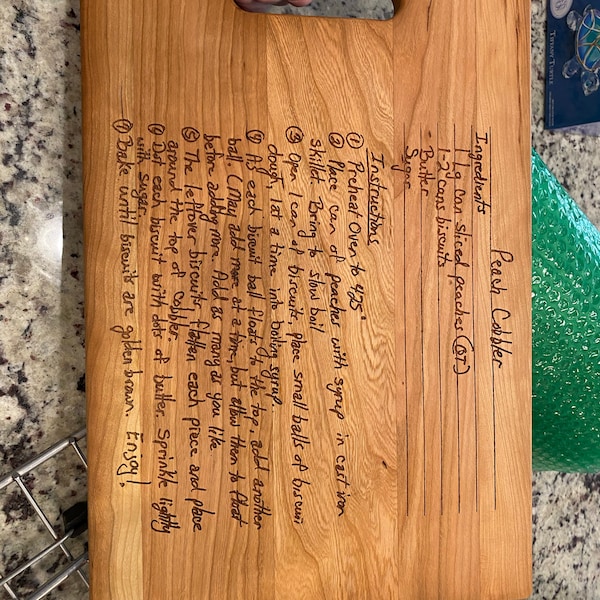 Peach Cobbler
Ingredients
1 lg can sliced peaches (QT)
1-2 cans biscuits
Butter
Sugar
Instructions
① Preheat Oven to 425°
② Place can of peaches with syrup in cast iron
skillet. Bring to slow boil
③ Open 1 can of biscuits, place small balls of biscuit
dough, 1 at a time into boiling syrup.
④ As each biscuit ball floats to the top, add another
ball. (May add more at a time, but allow them to float
before adding more. Add as many as you like
⑤ The leftover biscuits, flatten each piece and place
around the top of cobbler.
⑥ Dot each biscuit with dots of butter. Sprinkle lightly
with sugar.
⑦ Bake until biscuits are golden brown. Enjoy!
TIFFANY TURTLE